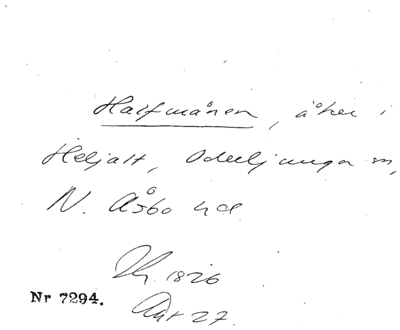 Halfmånen, åker i
Heljalt, Oderljunga sn,
N. Åsbo hd
1826
Nr 7294.
Akt 27.